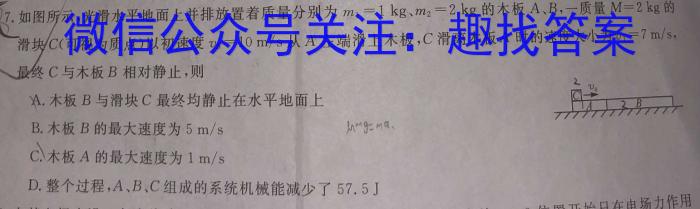 7.如图所示,光滑水平地面上并排放置着质量分别为 m₁=1 kg、m₂=2 kg 的木板 A、B,一质量 M=2 kg 的
滑块 C(可视为质点)以初速度 10 m/s 从 A 左端滑上木板,C 滑 的速度大小为 =7 m/s,
微信公众号关注:趣找答案
最终 C 与木板 B 相对静止,则
A.木板 B 与滑块 C 最终均静止在水平地面上
B.木板 B 的最大速度为 5 m/s
C.木板 A 的最大速度为 1 m/s
D.整个过程,A、B、C 组成的系统机械能减少了 57.5 J
2
C
A 2 B
开始只在电场力作用